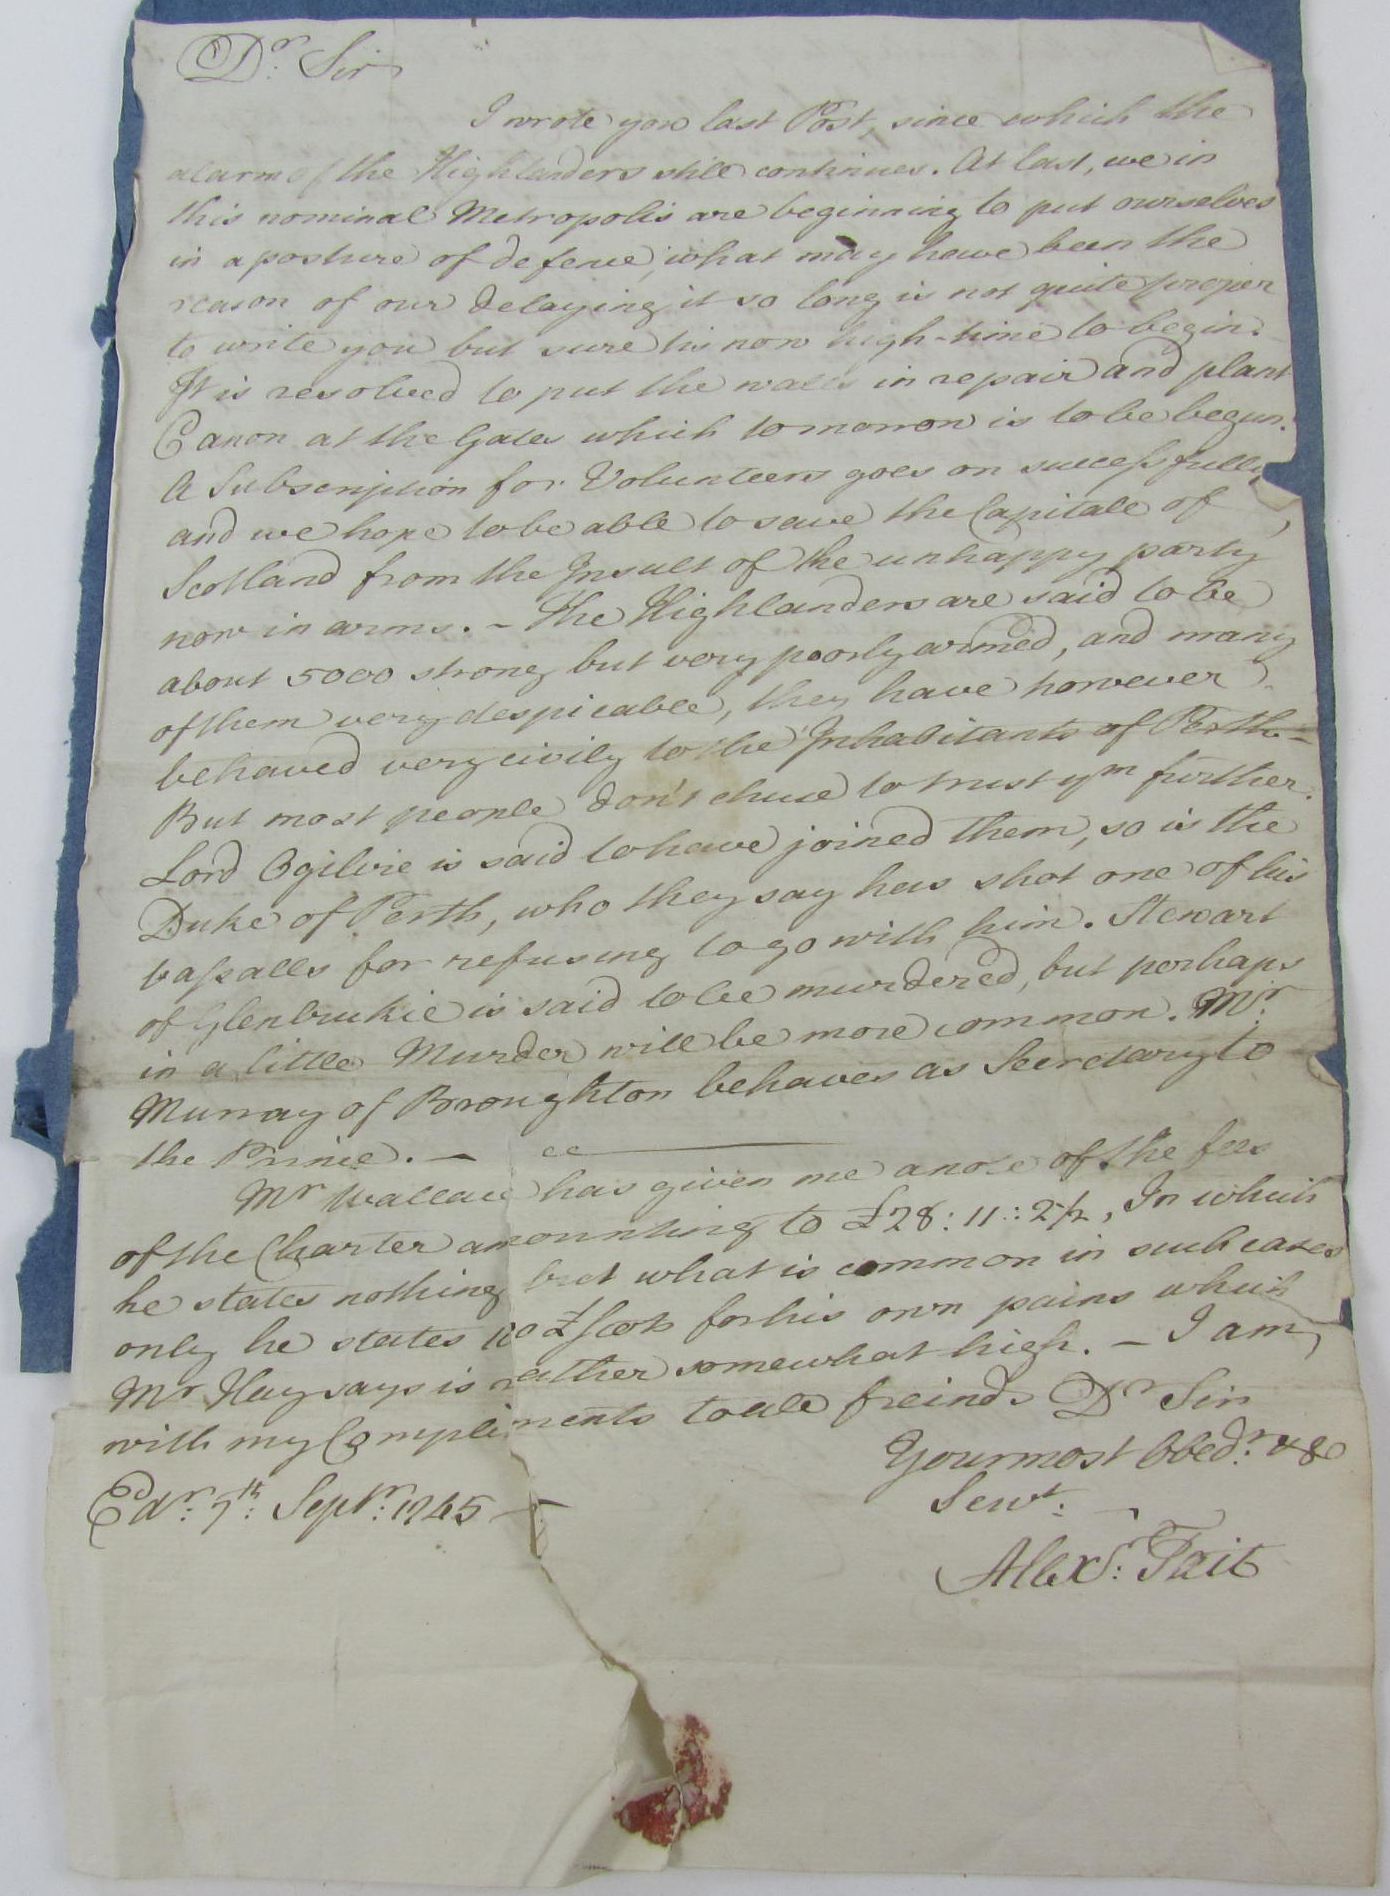 Dr: Sir
I wrote you last Post, since which the
alarm of the Highlanders still continues. At last, we in
this nominal Metropolis are beginning to put ourselves
in a posture of defence, what may have been the
reason of our delaying it so long is not quite proper
to write you but sure tis now high-time to begin.
It is resolved to put the walls in repair and plant
Canon at the Gates which tomorrow is to be begun.
A Subscription for Volunteers goes on successfully
and we hope to be able to save the Capitale of
Scotland from the Insult of the unhappy party
now in arms. - The Highlanders are said to be
about 5000 strong but very poorly armed, and many
of them very despicable, they have however
behaved very civily to the Inhabitants of Perth -
But most people don't chuse to trust ym further.
Lord Ogilvie is said to have joined them, so is the
Duke of Perth, who they say has shot one of his
vassalls for refusing to go with him. Stewart
of Glenbuckie is said to be murdered, but perhaps
in a little Murder will be more common. Mr:
Murray of Broughton behaves as Secretary to
the Prince. -
Mr Wallace has given me a note of the fees
of the Charter amounting to £28:11::2½, In which
he states nothing but what is common in such cases
only he states 100 £ Scots for his own pains which
Mr Hay says is rather somewhat high. - I am
with my Compliments to all freinds Dr Sir
Your most Obedr: &c
Servt:
Edr: 7th: Septr: 1745 -
Alexr: Tait